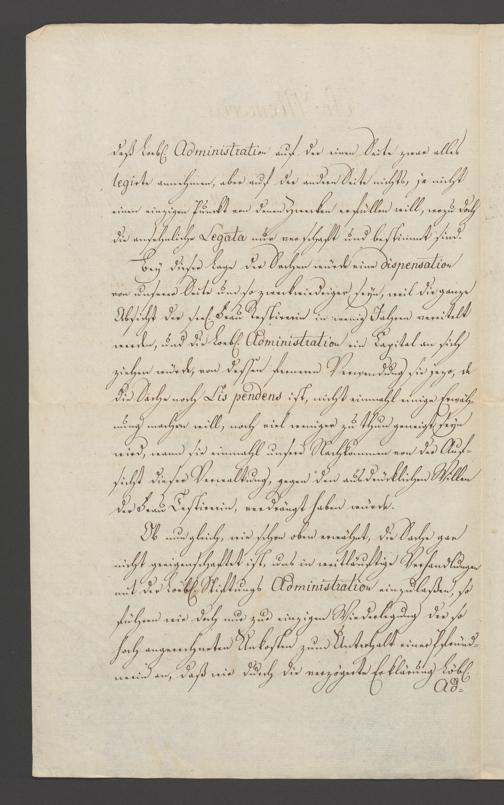 daß Löbl. Administration auf der einen Seite zwar alles
legirte annehmen, aber auf der andern Seite nichts, ja nicht
einen einzigen Punkt von denen Zwecken erfüllen will, wozu doch
die ansehnliche Legata nur verschafft und bestimmt sind.
Bey dieser Lage der Sachen würde eine dispensation
von unserer Seite um so zweckwiedriger seyn, weil die ganze
Absicht der sel. Frau Testirerin in wenig Jahren vereitelt
werden, und die Löbl. Administration ein Kapital an sich
ziehen würde, von dessen frommen Verwendung sie jezo, da
die Sache noch Lis pendens ist, nicht einmahl einige Erwäh-
nung machen will, noch viel weniger zu thun geneigt seyn
wird, wann sie einmahl unsere Nachkommen von der Auf-
sicht dieser Verwaltung, gegen den ausdrücklichen Willen
der Frau Testirerin, verdrängt haben würde.
Ob nun gleich, wie schon oben erwähnt, die Sache gar
nicht geeigenschaftet ist, uns in weitläuftige Verhandlungen
mit der Löbl. Stiftungs Administration einzulaßen, so
führen wir doch nur zur einzigen Wiederlegung der so
hoch angerechneten Unkosten zum Unterhalt einer Pfründ-
nerin an, daß wir durch die verzögerte Erklärung Löbl.
Ad-